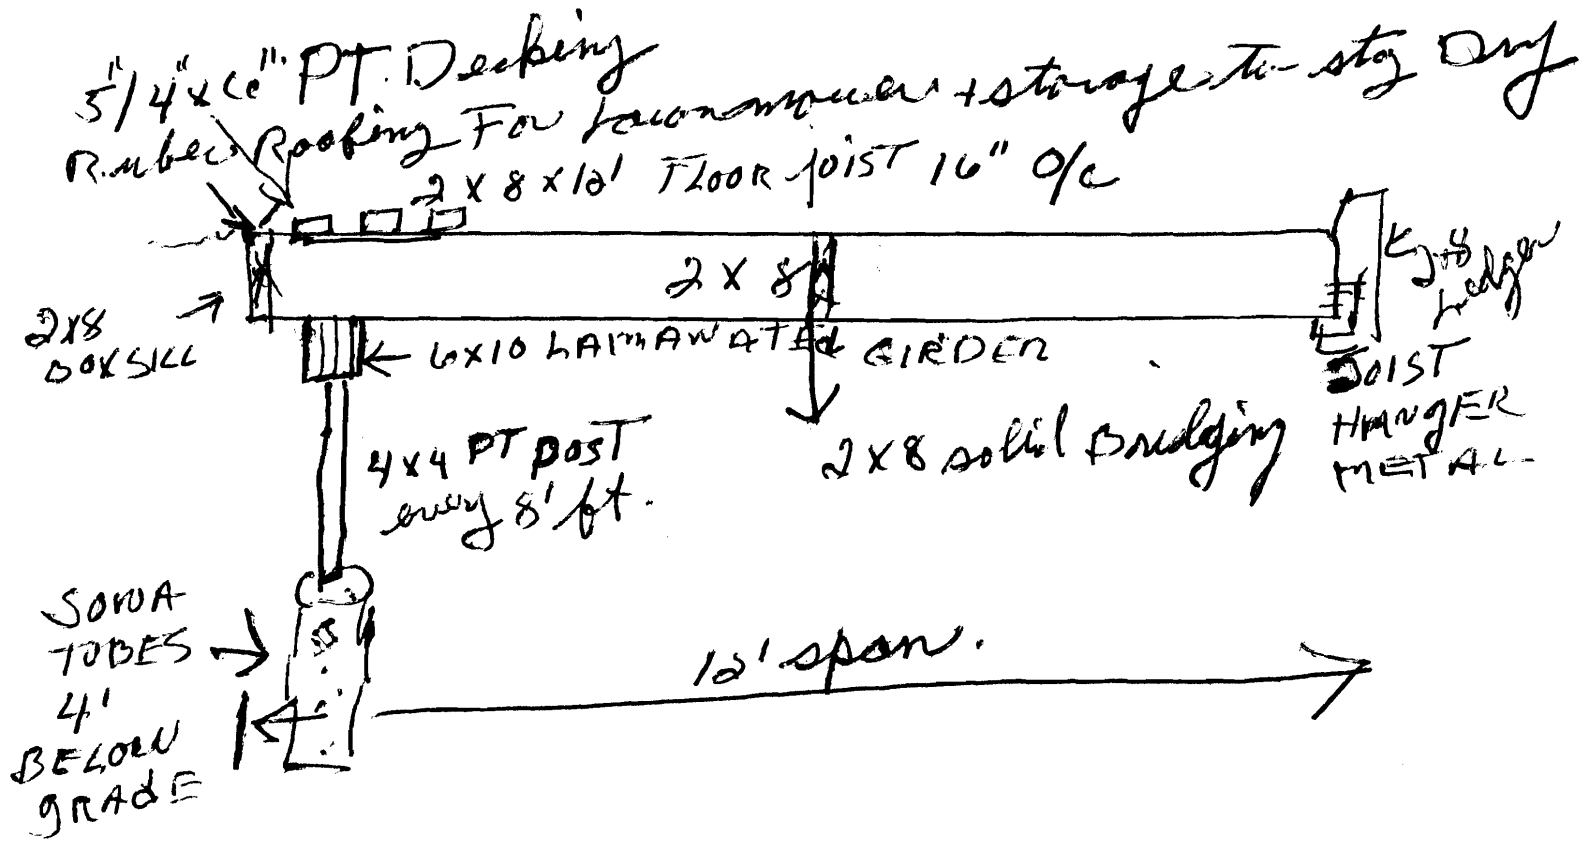 5"/4"x6" PT. Decking
Rubber Roofing For Lawnmower + storage to stay Dry
2 X 8 X 12' FLOOR JOIST 16" O/C
2 X 8
2x8 Ledger
2X8
BOXSILL
6X10 LAMANATEd GIRDER
JOIST
HANgER
METAL
2X8 solid Bridging
4X4 PT POST
every 8' ft.
SONA
TUBES
4'
BELOW
gRAdE
12' span.